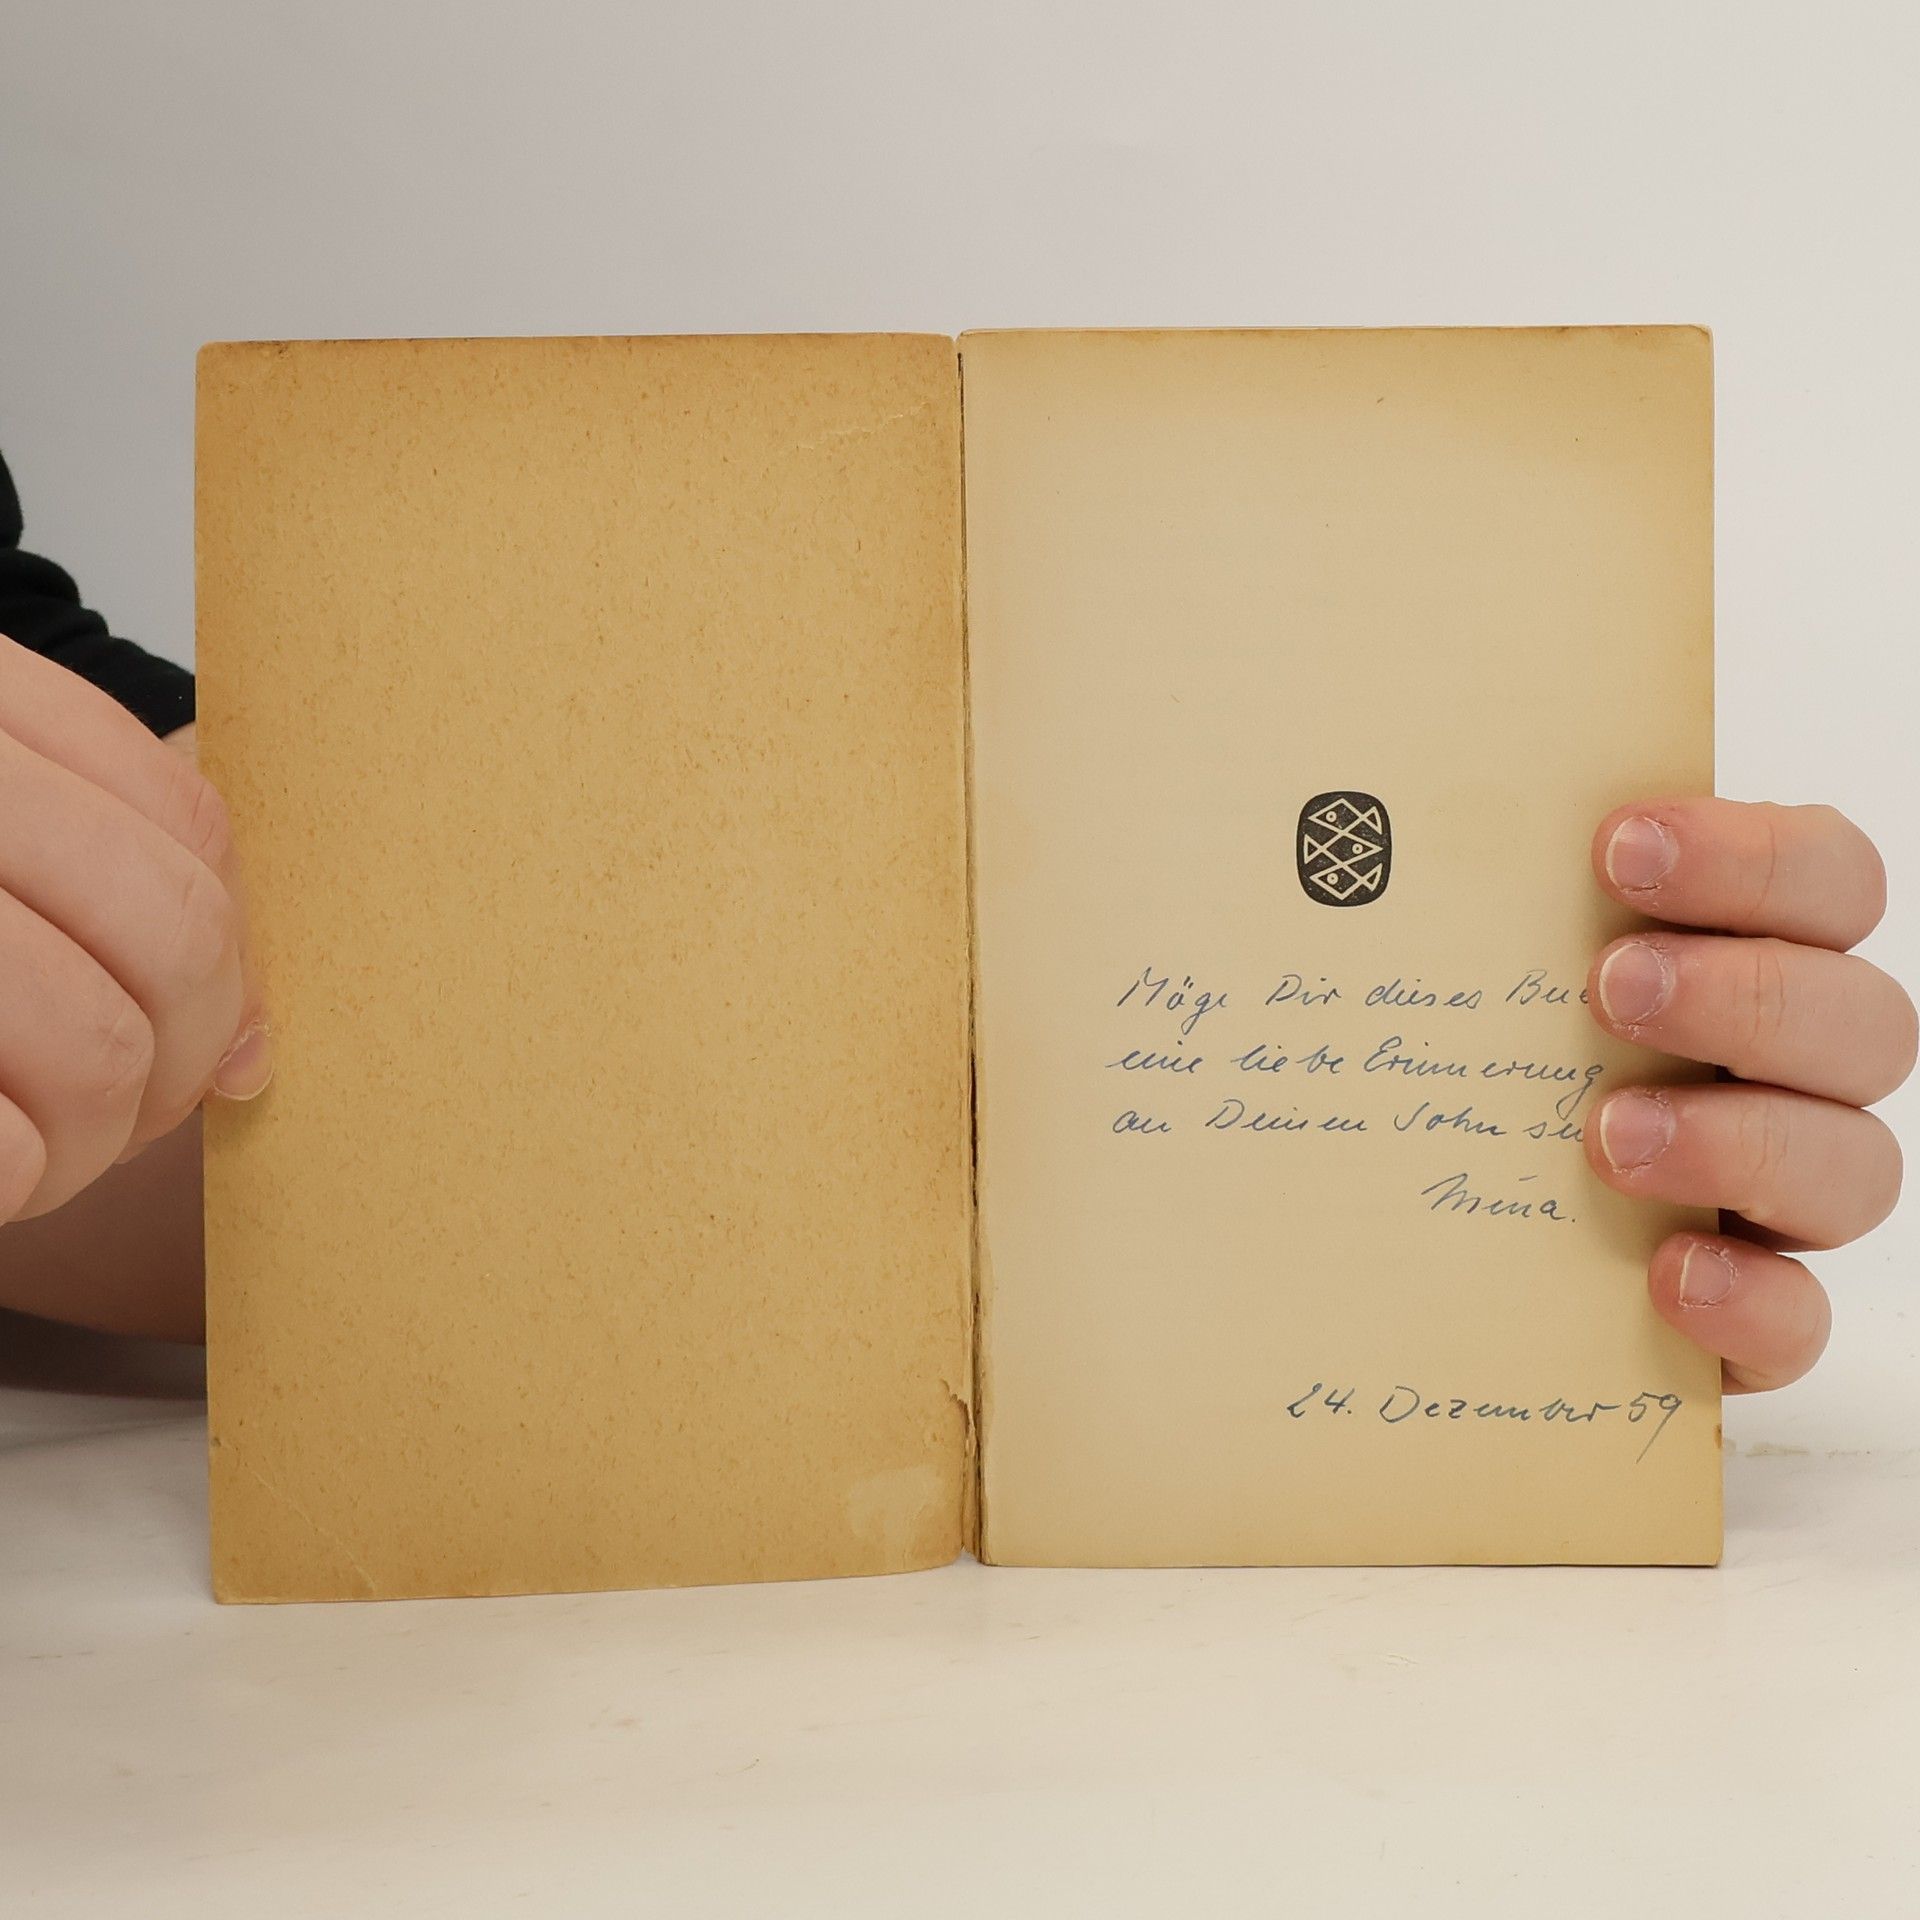 Möge Dir dieses
eine liebe Erinnerung
an Deinen Sohn
Mina.
24. Dezember 59